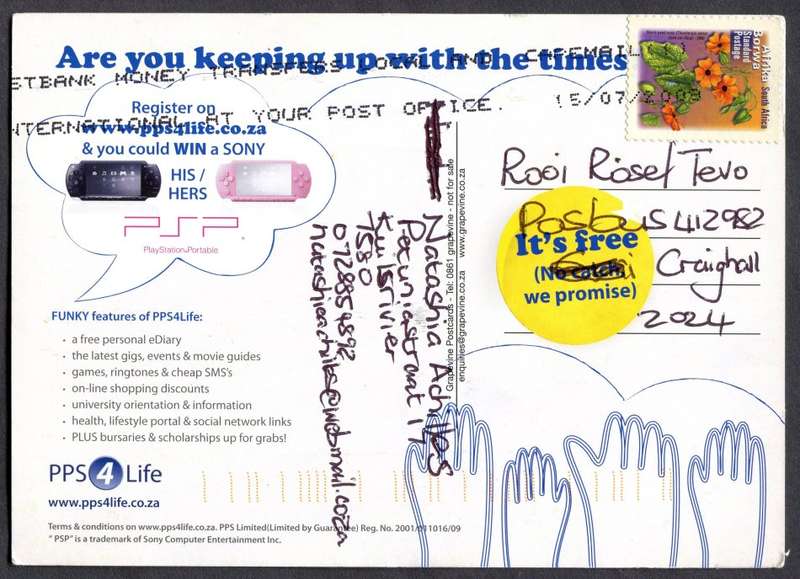 Are you keeping up with the times
STBANK MONEY TRANSFERS LOCAL AND CASEMAIL
INTERNATIONAL AT YOUR POST OFFICE. 15/07/2008
Register on
www.pps4life.co.za
& you could WIN a SONY
HIS /
HERS
PSP
PlayStation Portable
FUNKY features of PPS4Life:
• a free personal eDiary
• the latest gigs, events & movie guides
• games, ringtones & cheap SMS's
• on-line shopping discounts
• university orientation & information
• health, lifestyle portal & social network links
• PLUS bursaries & scholarships up for grabs!
PPS 4 Life
www.pps4life.co.za
Terms & conditions on www.pps4life.co.za. PPS Limited(Limited by Guarantee) Reg. No. 2001/011016/09
"PSP" is a trademark of Sony Computer Entertainment Inc.
Natashia Achilles
Petuniastraat 17
Kuilsrivier
7580
0728854892
natashiaachilles@webmail.co.za
Grapevine Postcards - Tel: 0861 grapevine - not for sale
enquiries@grapevine.co.za www.grapevine.co.za
Afrika Borwa
South Africa
Standard Postage
Rooi Rose/ Tevo
Posbus 412982
Craighall
2024
It's free
(No catch,
we promise)